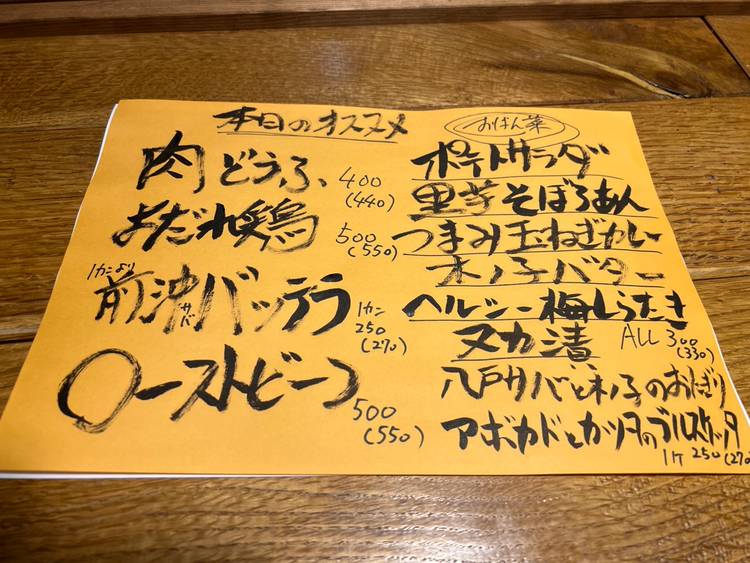 本日のオススメ
肉どうふ 400
(440)
よだれ鶏 500
(550)
1カンより
前沖バッテラ
サバ
1カン
250
(270)
ローストビーフ
500
(550)
おばん菜
ポテトサラダ
里芋そぼろあん
つまみ玉ねぎカレー
木ノ子バター
ヘルシー梅しらたき
ヌカ漬 ALL 300
(330)
八戸サバと木ノ子のおにぎり
アボカドとカツオのブルスケッタ
1ケ 250 (270)